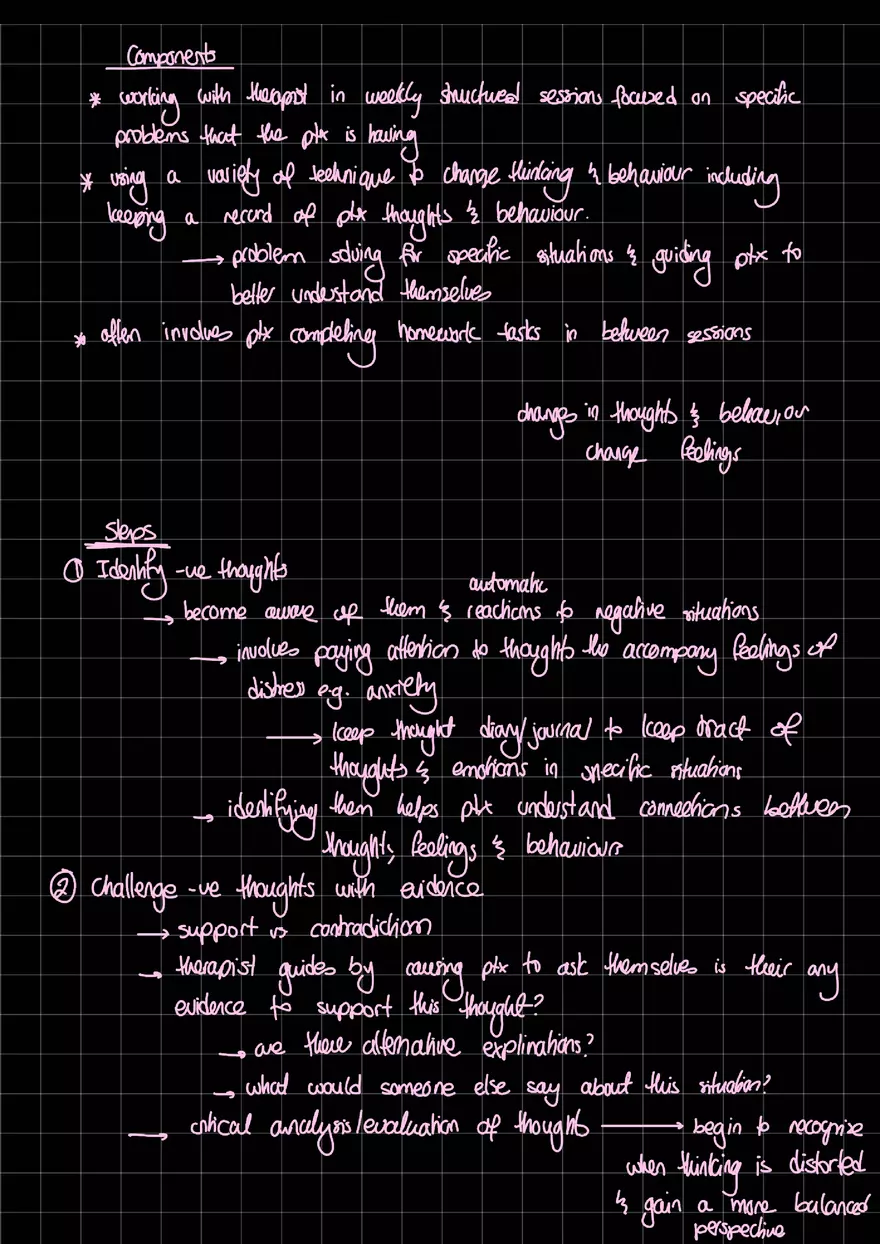 Components
* working with therapist in weekly structured sessions focused on specific
problems that the ptx is having
* using a variety of technique to change thinking & behaviour including
keeping a record of ptx thoughts & behaviour.
→ problem solving for specific situations & guiding ptx to
better understand themselves
* often involves ptx completing homework tasks in between sessions
changes in thoughts & behaviour
change feelings
Steps
① Identify -ve thoughts
automatic
→ become aware of them & reactions to negative situations
→ involves paying attention to thoughts the accompany feelings of
distress e.g. anxiety
→ keep thought diary/journal to keep tract of
thoughts & emotions in specific situations
→ identifying them helps ptx understand connections between
thoughts, feelings & behaviours
② Challenge -ve thoughts with evidence
→ support vs contradiction
→ therapist guides by causing ptx to ask themselves is their any
evidence to support this thought?
→ are there alternative explinations?
→ what would someone else say about this situation?
→ critical analysis/evaluation of thoughts → begin to recognise
when thinking is distorted
& gain a more balanced
perspective